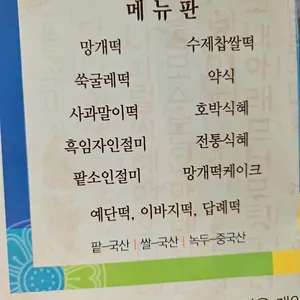 메뉴판
망개떡 수제찹쌀떡
쑥굴레떡 약식
사과말이떡 호박식혜
흑임자인절미 전통식혜
팥소인절미 망개떡케이크
예단떡, 이바지떡, 답례떡
팥-국산 | 쌀-국산 | 녹두-중국산